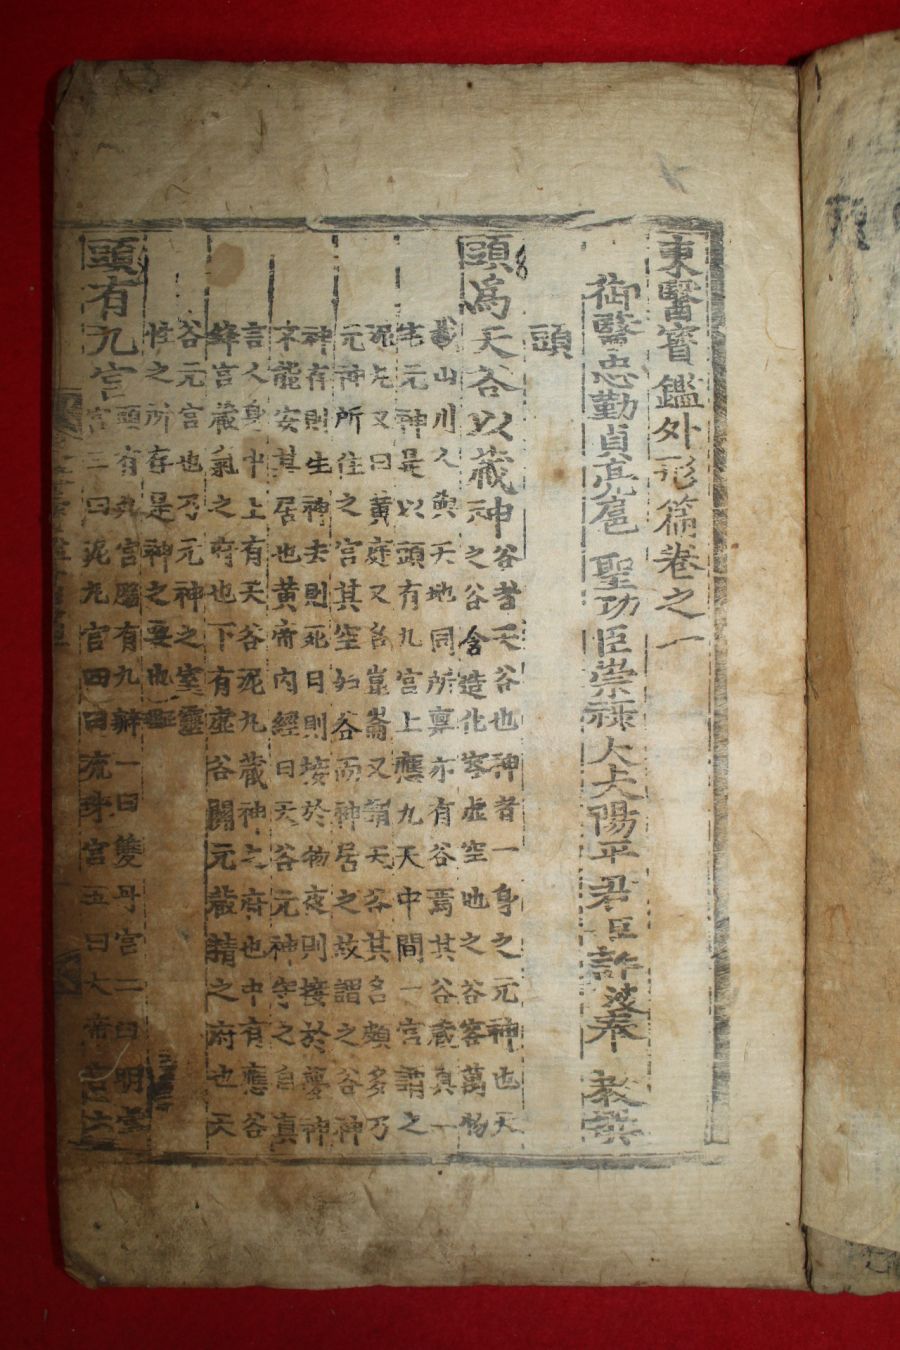 東醫寳鑑外形篇卷之一
御醫忠勤貞亮扈 聖功臣崇祿大夫陽平君臣許浚奉 敎撰
頭
頭爲天谷以藏神谷者天谷也神者一身之元神也天
之谷含造化容虚空地之谷容萬物
載山川人與天地同所禀亦有谷焉其谷藏真一
宅元神是以頭有九宮上應九天中間一宮謂之
泥丸又曰黄庭又名崑崙又謂天谷其名頗多乃
元神所住之宮其空如谷而神居之故謂之谷神
神有則生神去則死日則接於物夜則接於夢神
不能安其居也黄帝内經曰天谷元神守之自真
言人身中上有天谷泥丸藏神之府也中有應谷
絳宮藏氣之府也下有虚谷關元藏精之府也天
谷元宮也乃元神之室靈
性之所存是神之要也
頭有九宮頭有九宮腦有九瓣一曰雙丹宮二曰明堂
宮三曰泥丸宮四曰流珠宮五曰大帝宮六